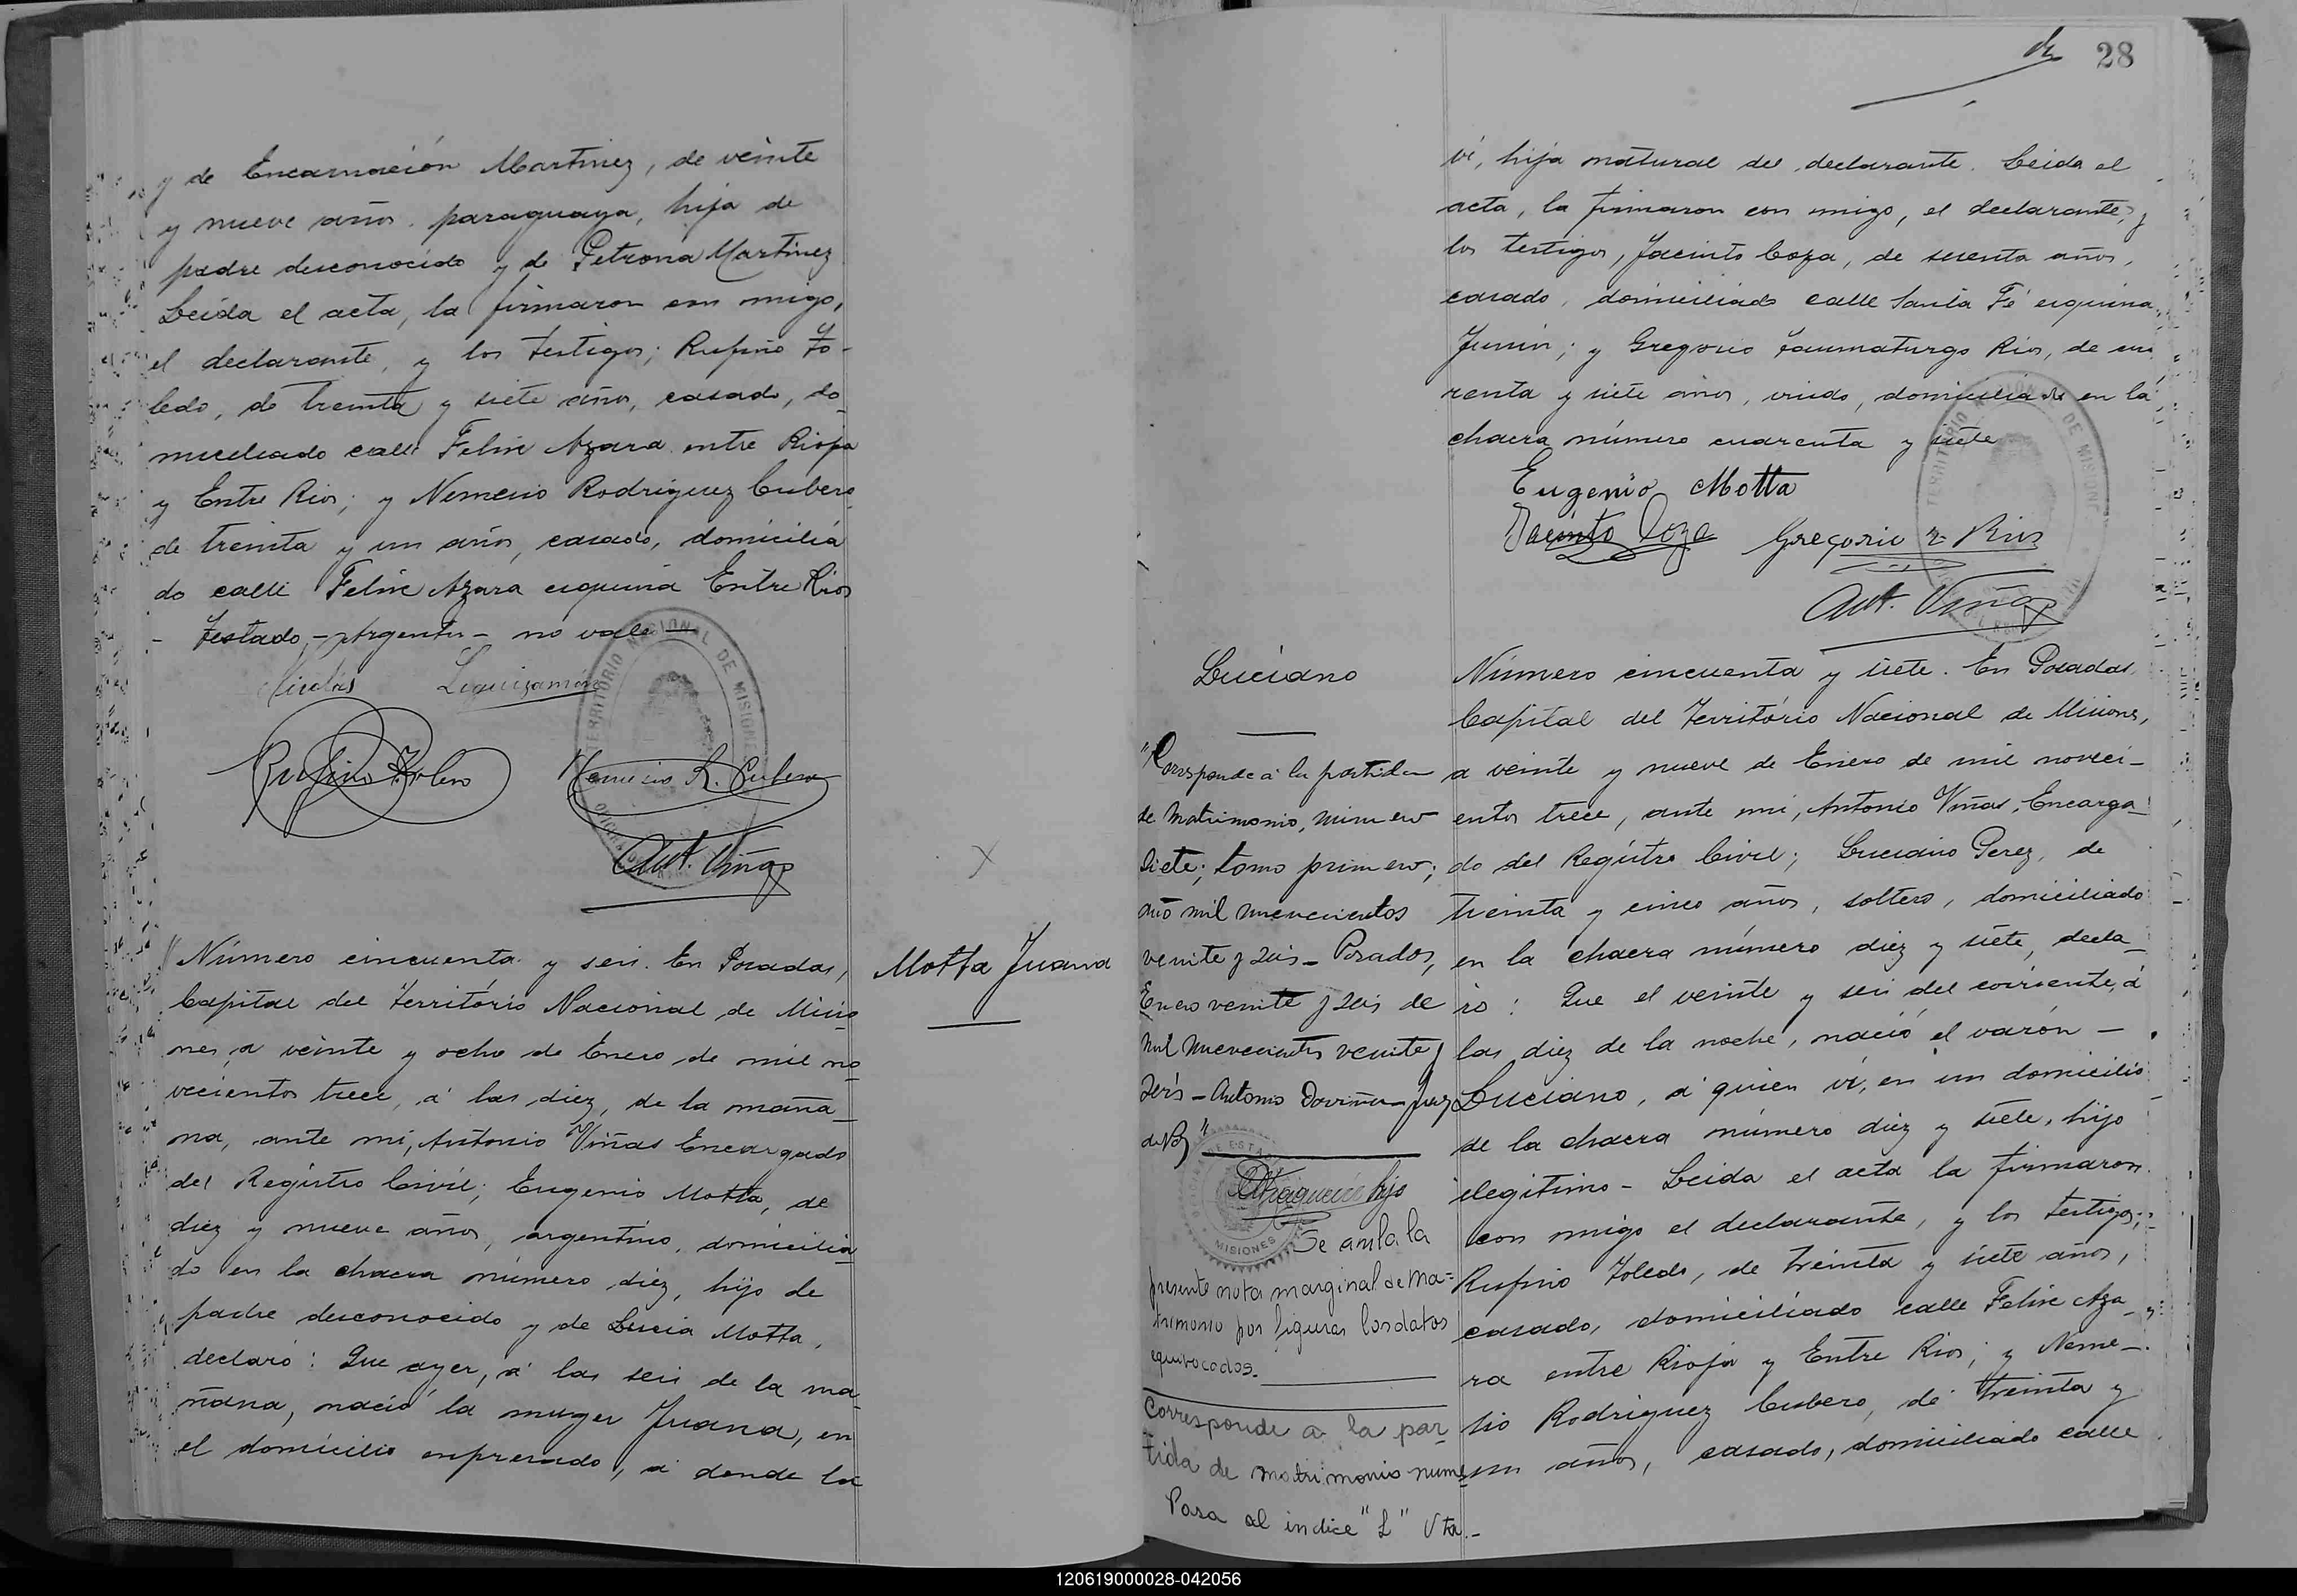 y de Encarnación Martinez, de veinte
y nueve años, paraguaya, hija de
padre desconocido y de Petrona Martinez
Leida el acta, la firmaron con migo,
el declarante, y los testigos; Rufino To-
ledo, de treinta y siete años, casado, do-
miciliado calle Felix Azara entre Rioja
y Entre Rios; y Nemesio Rodriguez Cubero
de treinta y un años, casado, domicilia
do calle Felix Azara esquina Entre Rios
- Testado - Argentin - no vale -
Nicolás Leguizamón
Rufino Toledo Nemesio R. Cubero
Ant. Viñas
Motta Juana
Número cincuenta y seis. En Posadas,
Capital del Territorio Nacional de Misio
nes, a veinte y ocho de Enero de mil no
vecientos trece, á las diez, de la maña
na, ante mi, Antonio Viñas Encargado
del Registro Civil; Eugenio Motta, de
diez y nueve años, argentino, domicilia
do en la chacra número diez, hijo de
padre desconocido y de Lucia Motta,
declaró: Que ayer, á las seis de la ma
ñana, nació la muger Juana, en
el domicilio expresado, á donde la
28
vi, hija natural del declarante. Leida el
acta, la firmaron con migo, el declarante, y
los testigos, Jacinto Coza, de setenta años,
casado, domiciliado calle Santa Fé esquina
Junin; y Gregorio Taumaturgo Rios, de cua
renta y siete años, viudo, domiciliado en la
chacra número cuarenta y siete
Eugenio Motta
Jacinto Coza Gregorio T. Rios
Ant. Viñas
Luciano
"Corresponde á la partida
de Matrimonio, número
siete; tomo primero;
año mil nuevecientos
veinte y seis - Posadas,
Enero veinte y seis de
mil nuevecientos veinte y
seis - Antonio Juez
de Paz"
hijo
MISIONES
Se anula la
presente nota marginal de Ma-
trimonio por figurar los datos
equivocados.
Corresponde a la par-
tida de matrimonio nume
Pasa al indice "L" Vta.-
Número cincuenta y siete. En Posadas,
Capital del Territorio Nacional de Misiones,
a veinte y nueve de Enero de mil noveci-
entos trece, ante mi, Antonio Viñas, Encarga-
do del Registro Civil; Luciano Perez, de
treinta y cinco años, soltero, domiciliado
en la chacra número diez y siete, decla-
ró: Que el veinte y seis del corriente, á
las diez de la noche, nació el varón -
Luciano, á quien vi, en un domicilio
de la chacra número diez y siete, hijo
elegitimo - Leida el acta la firmaron
con migo el declarante, y los testigos;
Rufino Toledo, de treinta y siete años,
casado, domiciliado calle Felix Aza-
ra entre Rioja y Entre Rios; y Neme-
sio Rodriguez Cubero, de treinta y
un años, casado, domiciliado calle
120619000028-042056